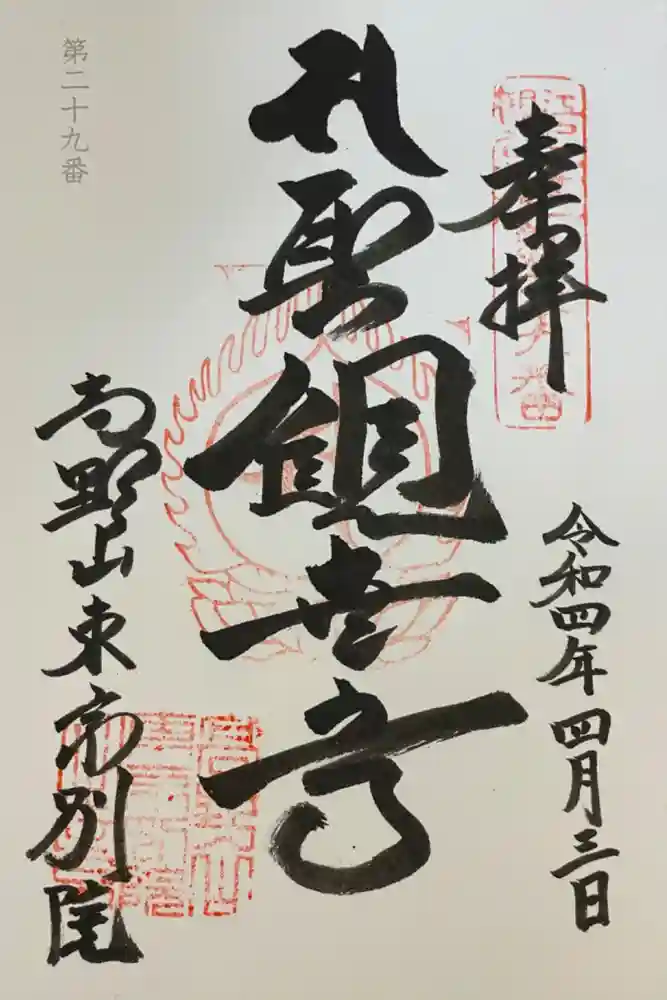 奉拝
令和四年四月三日
聖観世音
第二十九番
高野山東京別院